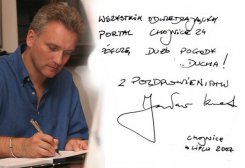 WSZYSTKIM ODWIEDZAJĄCYM
PORTAL CHOJNICE 24
ŻYCZĘ DUŻO POGODY
DUCHA!
Z POZDROWIENIAMI
CHOJNICE
LIPCA 2007